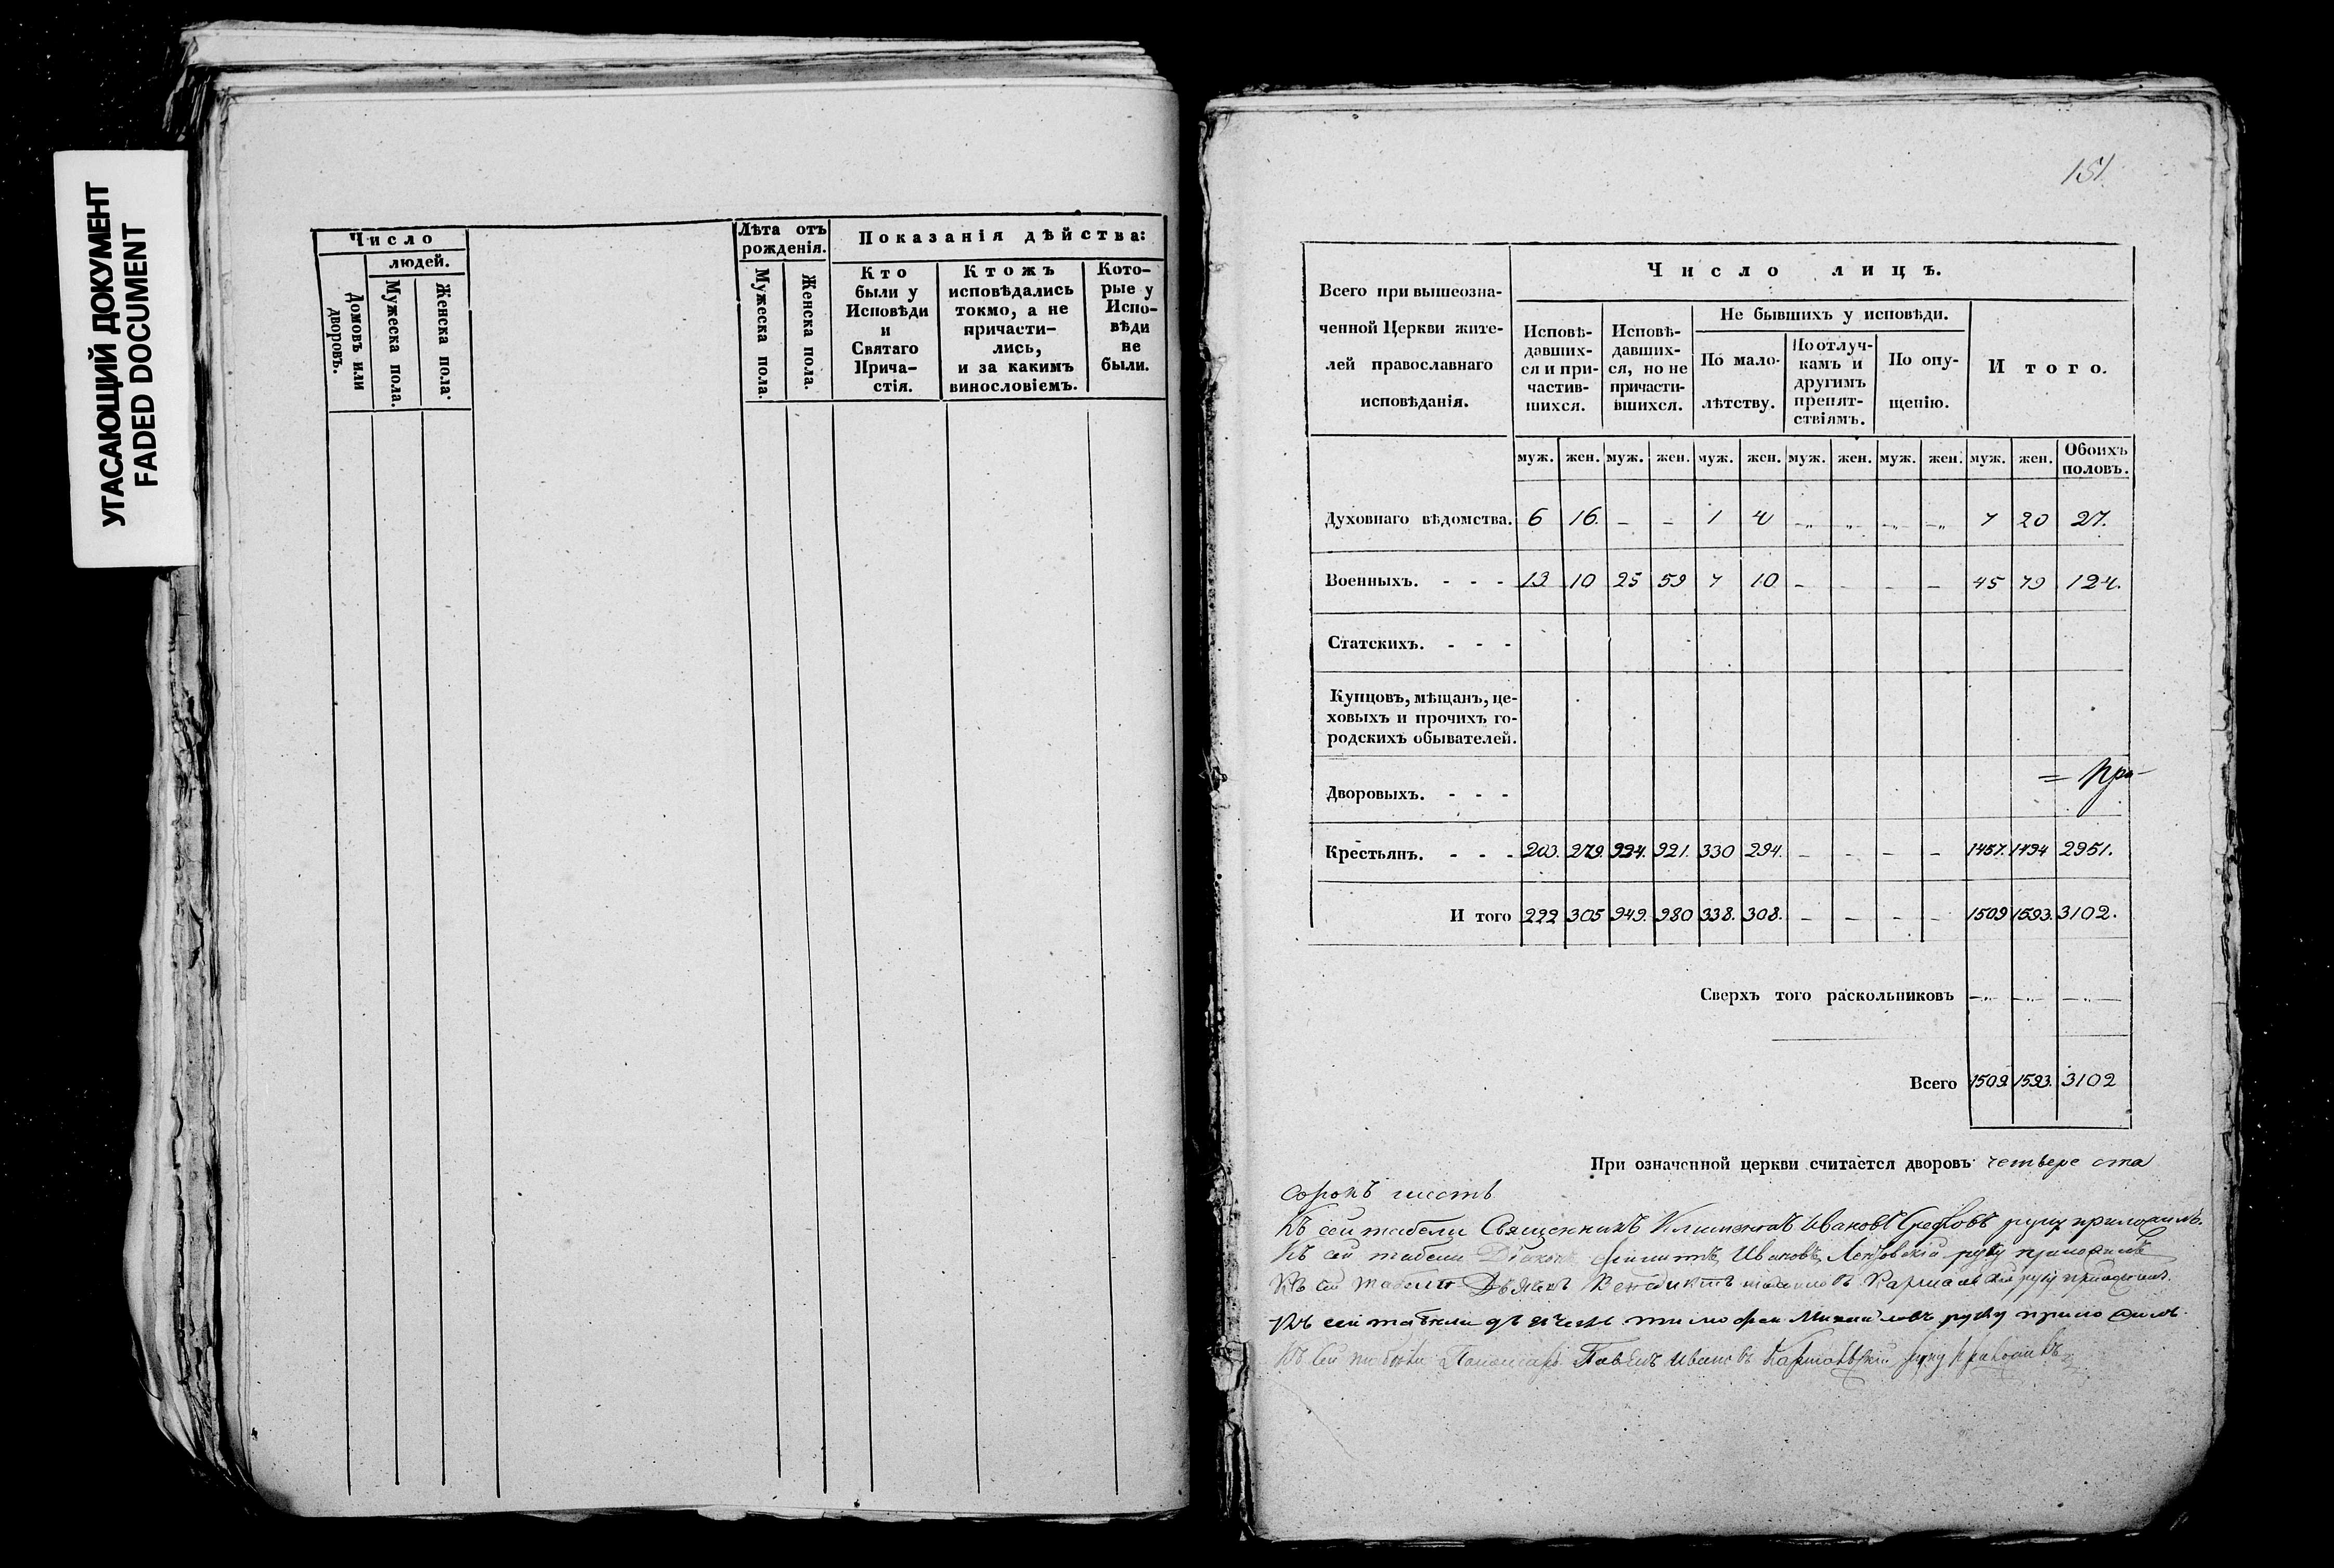 УГАСАЮЩИЙ ДОКУМЕНТ
FADED DOCUMENT
Число
людей.
Домовъ или дворовъ.
Мужеска пола.
Женска пола.
Лѣта отъ рожденія.
Мужеска пола.
Женска пола.
Показанія дѣйства:
Кто
были у
Исповѣди
и
Святаго
Прича-
стія.
Ктожъ
исповѣдались
токмо, а не
причасти-
лись,
и за какимъ
винословіемъ.
Кото-
рые у
Испо-
вѣди
не
были.
151
Всего при вышеозна-
ченной Церкви жите-
лей православнаго
исповѣданія.
Число лицъ.
Исповѣ-
давших-
ся и при-
частив-
шихся.
Исповѣ-
давших-
ся, но не
причасти-
вшихся.
Не бывшихъ у исповѣди.
По мало-
лѣтству.
По отлуч-
камъ и
другимъ
препят-
ствіямъ.
По опу-
щенію.
И того.
муж. жен. муж. жен. муж. жен. муж. жен. муж. жен. муж. жен. Обоихъ половъ.
Духовнаго вѣдомства. 6 16. – – 1 4 –„– „ –„– –„ 7 20 27.
Военныхъ. - - - 13 10 25 59 7 10 – – – – 45 79 124.
Статскихъ. - - -
Купцовъ, мѣщанъ, це-
ховыхъ и прочихъ го-
родскихъ обывателей.
= Про-
Дворовыхъ. - - -
Крестьянъ. - - - 203. 279. 924. 921. 330 294. – – – – 1457. 1494 2951.
И того 222 305 949. 980 338. 308. – – – – 1509 1593. 3102.
Сверхъ того раскольниковъ –„– –„– –„–
Всего 1509 1593. 3102
При означенной церкви считается дворовъ четвере ста
сорокъ шесть
Къ сей табели Священникъ Климентъ Ивановъ руку приложилъ.
Къ сей табели Діаконъ Ивановъ руку приложилъ
Къ сей табели Дьячекъ руку приложилъ.
Къ сей табели дьячекъ Тимофей Михайловъ руку приложилъ.
Къ сей табели Пономарь Павелъ Ивановъ руку приложилъ